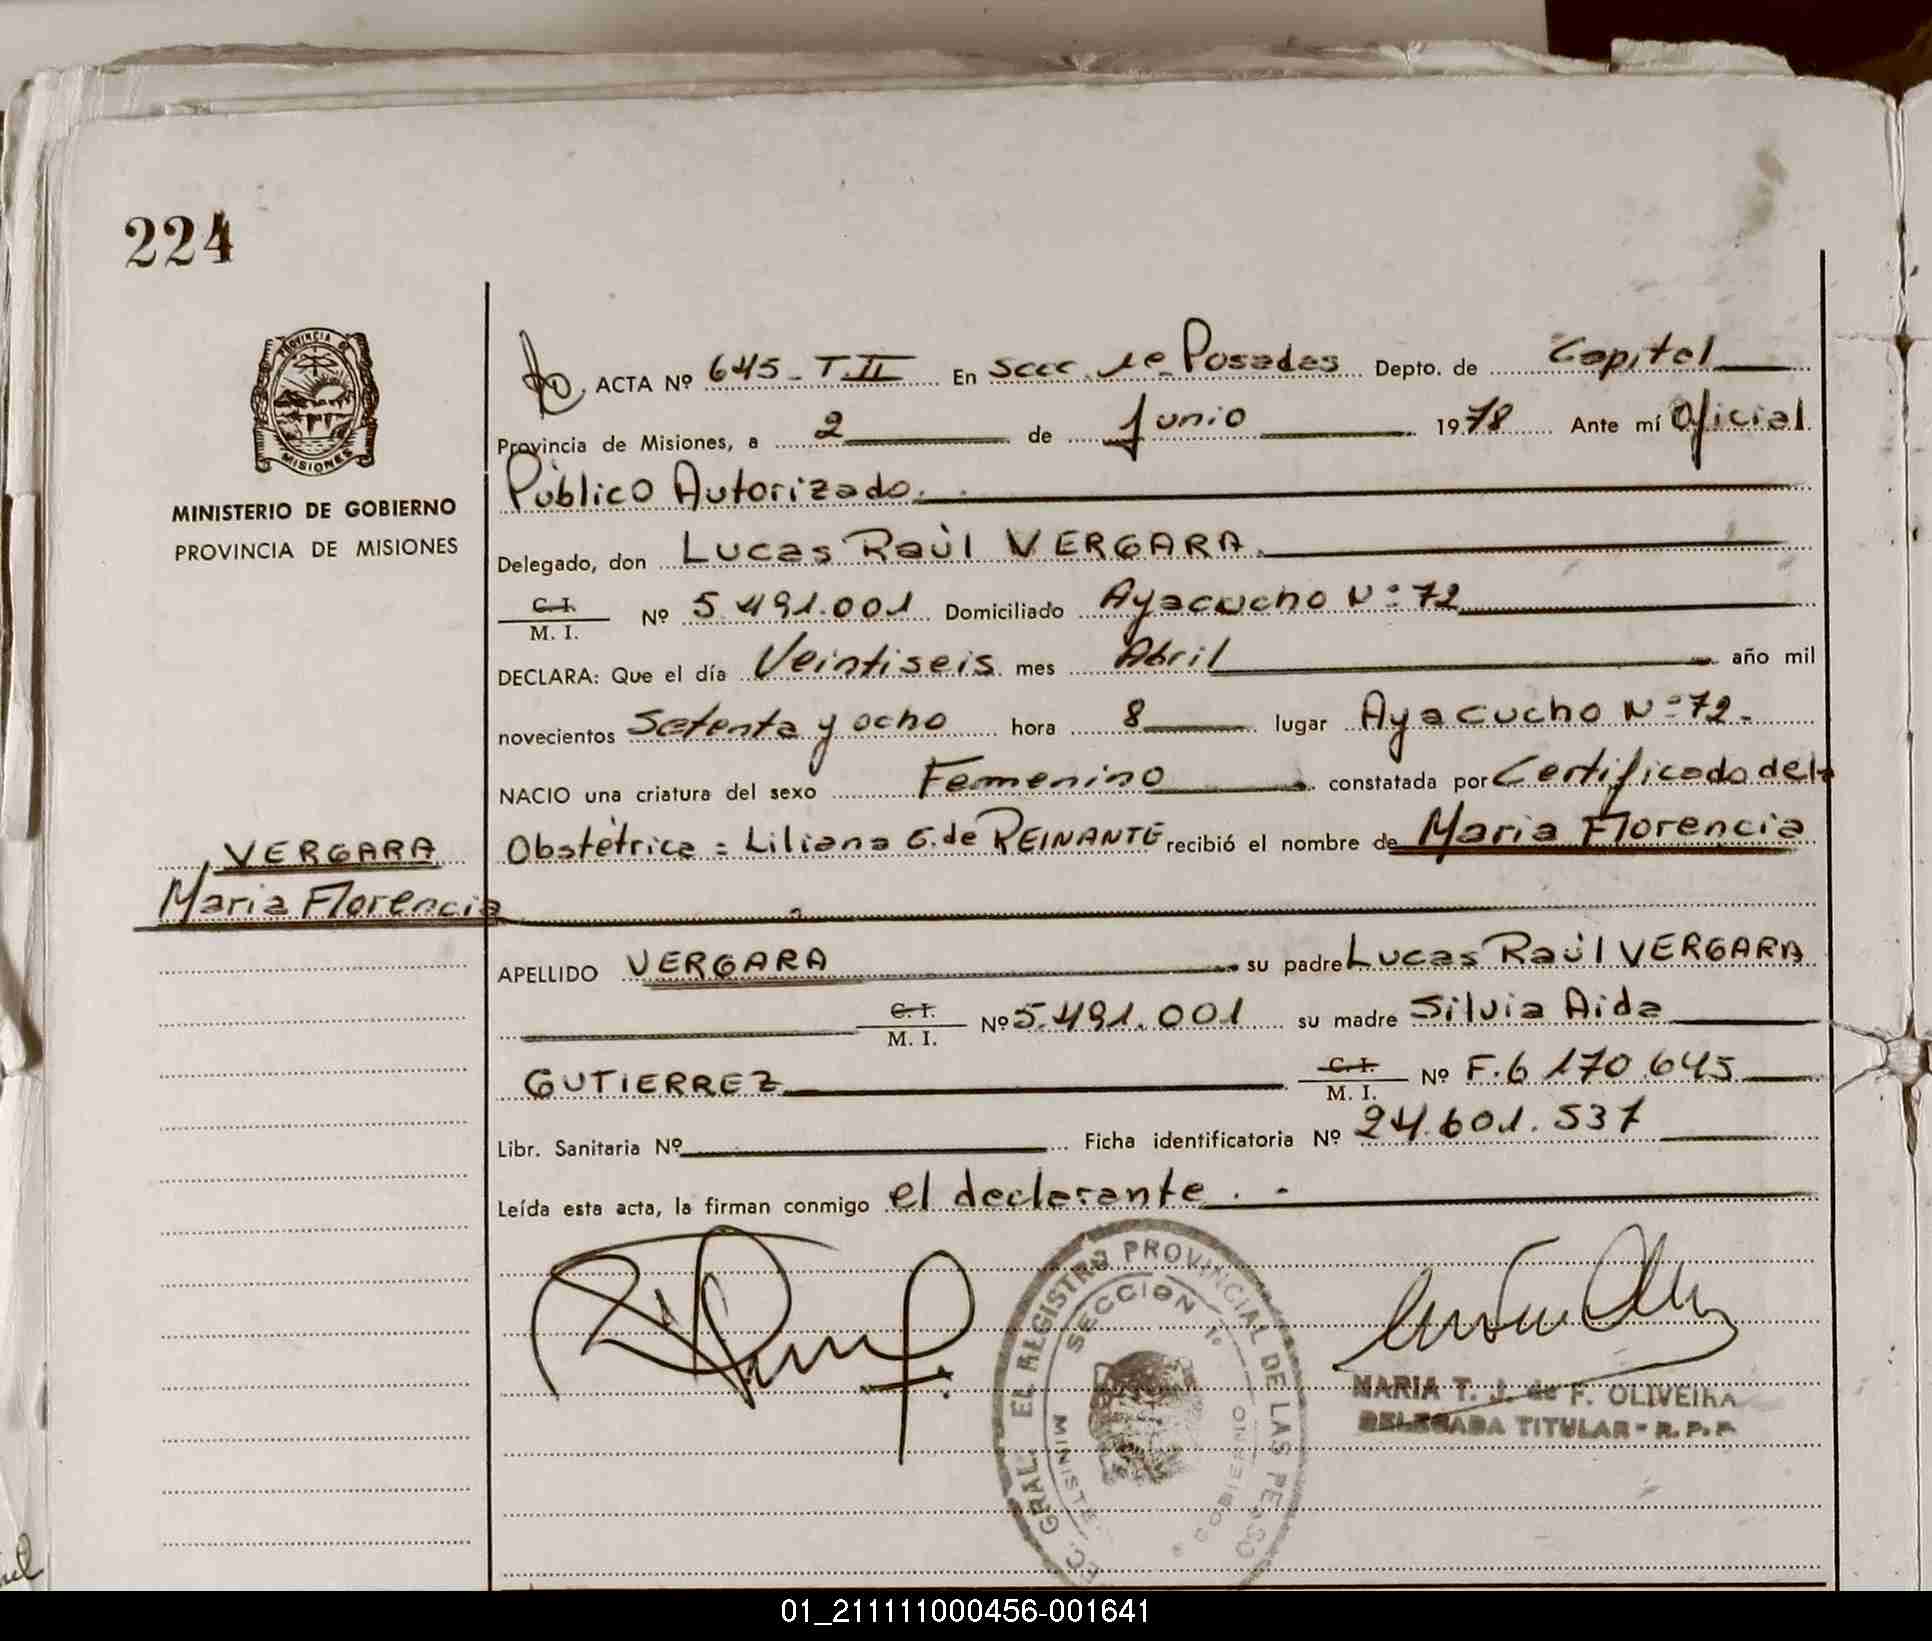 224
PROVINCIA DE
MISIONES
MINISTERIO DE GOBIERNO
PROVINCIA DE MISIONES
ACTA Nº 645 - T.II En Secc. 1ª Posadas Depto. de Capital
Provincia de Misiones, a 2 de Junio 1978 Ante mí Oficial
Público Autorizado.
Delegado, don Lucas Raùl VERGARA.
C. I.
M. I. Nº 5.491.001 Domiciliado Ayacucho Nº 72
DECLARA: Que el día Veintiseis mes Abril año mil
novecientos Setenta y ocho hora 8 lugar Ayacucho Nº 72.-
NACIO una criatura del sexo Femenino constatada por Certificado de la
Obstétrica = Liliana G. de REINANTE recibió el nombre de Maria Florencia
VERGARA
Maria Florencia
APELLIDO VERGARA su padre Lucas Raùl VERGARA
C. I.
M. I. Nº 5.491.001 su madre Silvia Aida
GUTIERREZ C. I.
M. I. Nº F.6 170.645
Libr. Sanitaria Nº Ficha identificatoria Nº 24.601.537
Leída esta acta, la firman conmigo el declarante. -
GRAL. EL REGISTRO PROVINCIAL DE LAS PERSO
SECCION 1º
MINISTE
GOBIERNO
MARIA T. J. de F. OLIVEIRA
DELEGADA TITULAR - R. P. P.
01_211111000456-001641